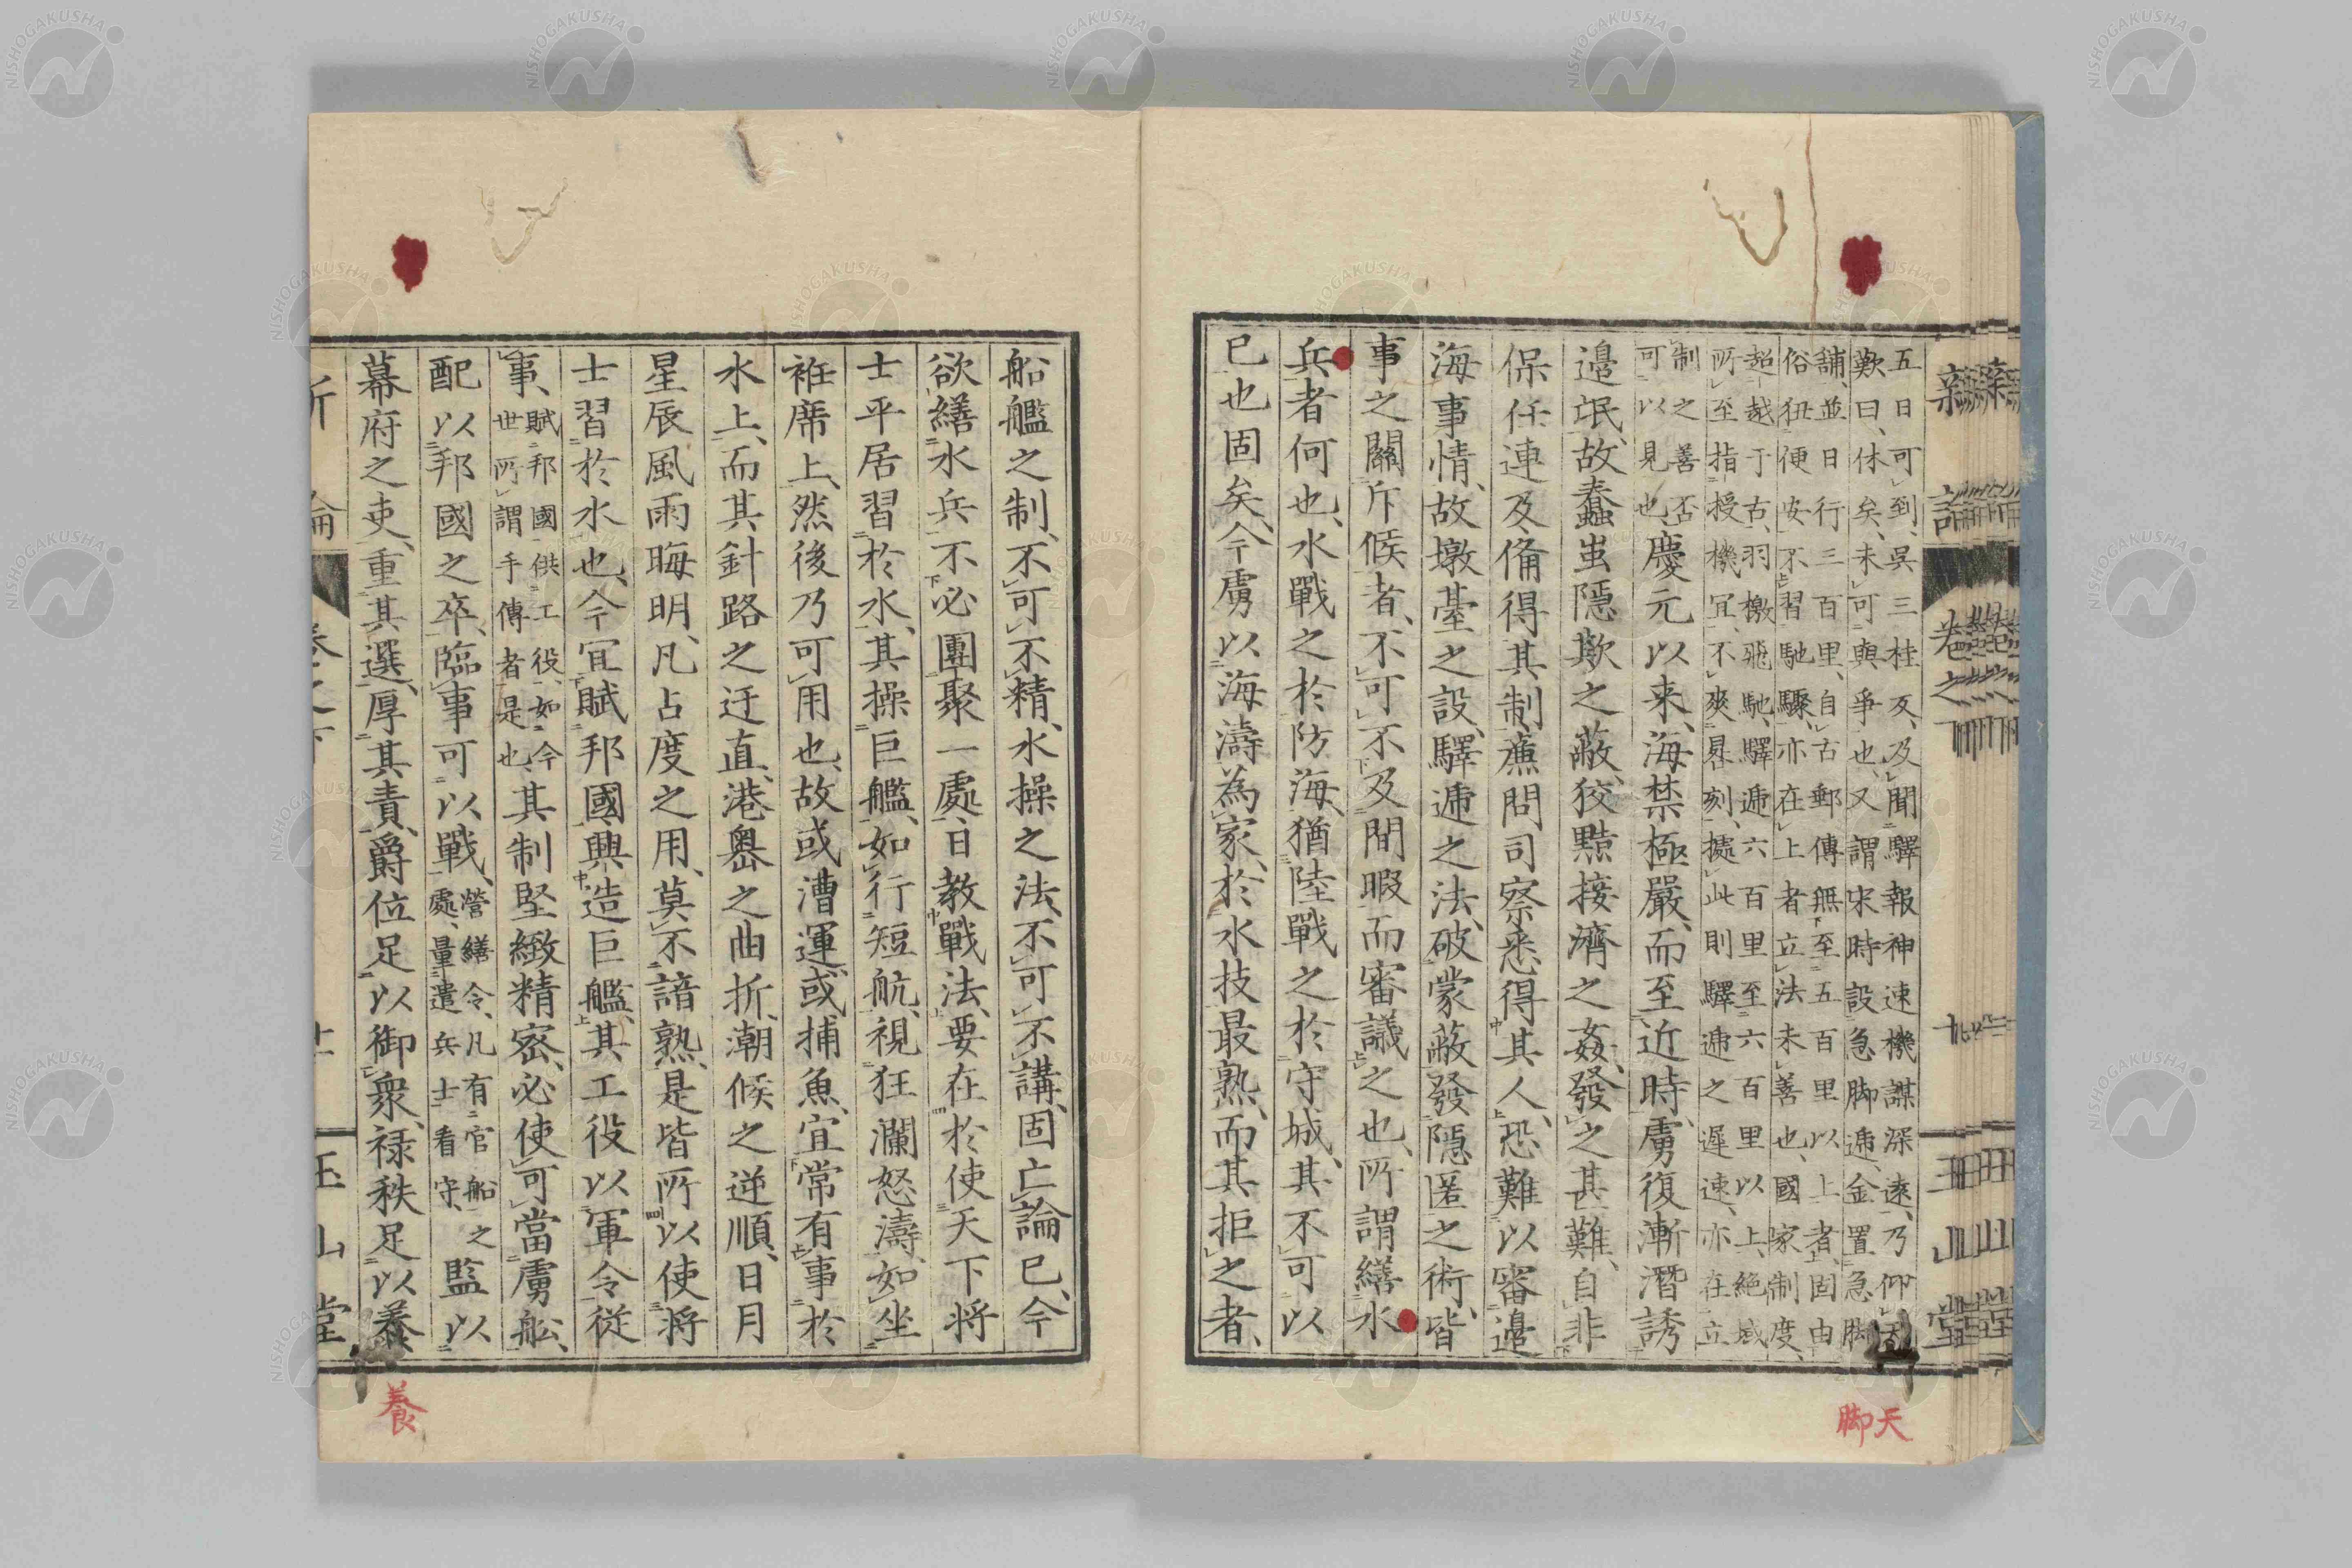 五日可到、吳三桂反、及聞驛報神速機謀深遠、乃仰天
歎曰、休矣、未可與爭也、又謂宋時設急脚遞、金置急脚
舖、並日行三百里、自古郵傳無至五百里以上者、固由
俗狃便安、不習馳驟、亦在上者立法未善也、國家制度、
超越于古、羽檄飛馳、驛遞六百里至六百里以上、絕域
所至、指授機宜、不爽晷刻、據此則驛遞之遲速、亦在立
制之善否
可以見也、慶元以来、海禁極嚴、而至近時、虜復漸潛誘
邊氓、故蠢蚩隱欺之蔽、狡黠接濟之姦、發之甚難、自非
保任連及、備得其制、廉問司察、悉得其人、恐難以審邊
海事情、故墩臺之設、驛遞之法、破蒙蔽發隱匿之術、皆
事之關斥候者、不可不及閒暇而審議之也、所謂繕水
兵者何也、水戰之於防海、猶陸戰之於守城、其不可以
已也固矣、今虜以海濤為家、於水技最熟、而其拒之者、
新論 卷之下 玉山堂
船艦之制、不可不精、水操之法、不可不講、固亡論已、今
欲繕水兵、不必團聚一處、日教戰法、要在於使天下將
士平居習於水、其操巨艦、如行短航、視狂瀾怒濤、如坐
袵席上、然後乃可用也、故或漕運、或捕魚、宜常有事於
水上、而其針路之迂直、港嶴之曲折、潮候之逆順、日月
星辰風雨晦明、凡占度之用、莫不諳熟、是皆所以使將
士習於水也、今宜賦邦國、興造巨艦、其工役以軍令從
事、賦邦國供工役、如今
世所謂手傳者是也、其制堅緻精密、必使可當虜舩、
配以邦國之卒、臨事可以戰、營繕令、凡有官船之
處、量遣兵士看守、監以
幕府之吏、重其選、厚其責、爵位足以御衆、禄秩足以養
玉山堂
天
脚
養
NISHOGAKUSHA